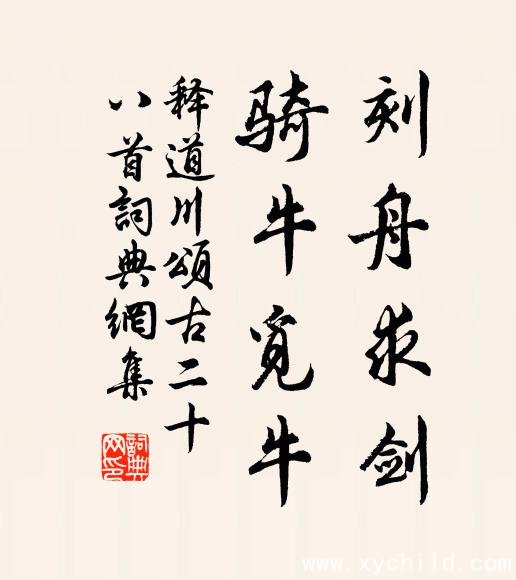 刻舟求剑
骑牛觅牛
释道川颂古二十
八首詞典網集
詞典网印
www.xychild.com